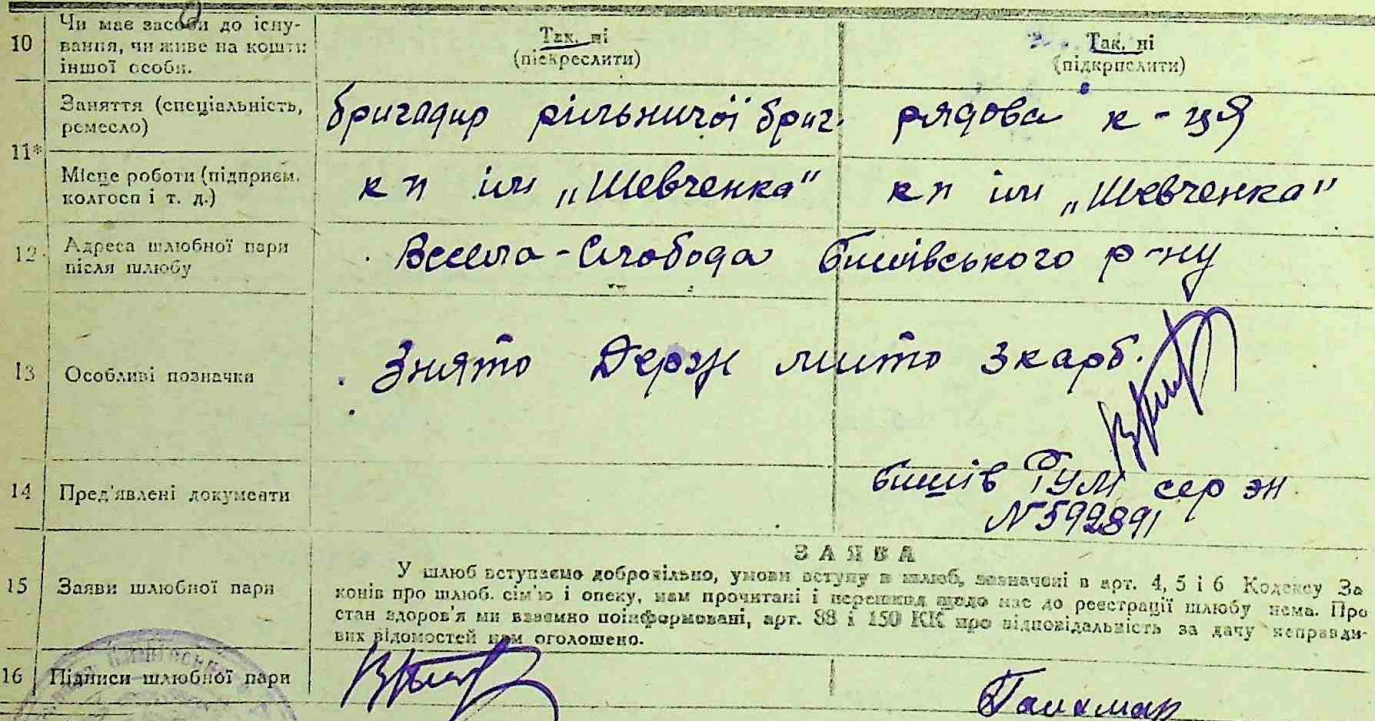 10 Чи має засоби до існу-
вання, чи живе на кошти
іншої особи.
Так, ні
(підкреслити)
Так, ні
(підкрислити)
11* Заняття (спеціальність,
ремесло)
бригадир рільничої бриг.
рядова к-ця
Місце роботи (підприєм.
колгосп і т. д.)
кп ім „Шевченка"
кп ім „Шевченка"
12 Адреса шлюбної пари
після шлюбу
Весела-Слобода Бишівського р-ну
13 Особливі позначки
Знято Держ мито 3 карб.
14 Пред'явлені документи
Бишів РУМ сер ЭН
№592891
15 Заяви шлюбної пари
ЗАЯВА
У шлюб вступаємо добровільно, умови вступу в шлюб, зазначені в арт. 4, 5 і 6 Кодексу За
конів про шлюб. сім'ю і опеку, нам прочитані і перешкод щодо нас до реєстрації шлюбу нема. Про
стан здоров'я ми взаємно поінформовані, арт. 88 і 150 КК про відповідальність за дачу неправди-
вих відомостей нам оголошено.
16 Підписи шлюбної пари